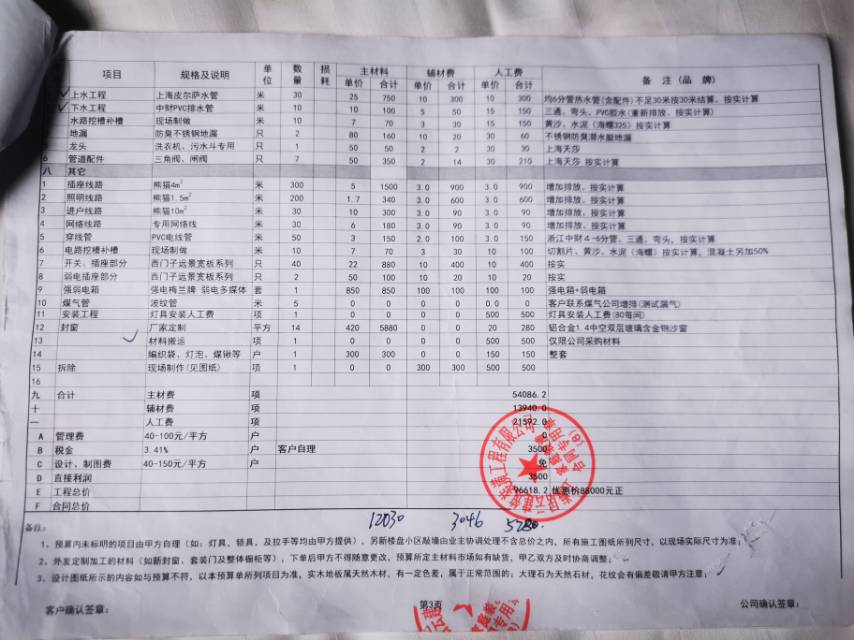 项目 规格及说明 单位 数量 损耗 主材料 辅材费 人工费 备 注（品 牌）
单价 合计 单价 合计 单价 合计
上水工程 上海皮尔萨水管 米 30 25 750 10 300 10 300 均6分管热水管(含配件)不足30米按30米结算。按实计算
下水工程 中财PVC排水管 米 10 10 100 5 50 15 150 三通，弯头，PVC胶水(重新排放、按实计算)
水路挖槽补槽 现场制做 米 10 7 70 3 30 15 150 黄沙、水泥（海螺325）按实计算
地漏 防臭不锈钢地漏 只 2 80 160 10 20 30 60 不锈钢防臭潜水艇地漏
龙头 洗衣机、污水斗专用 只 1 50 50 2 2 30 30 上海天莎
6 管道配件 三角阀、闸阀 只 7 50 350 2 14 30 210 上海天莎 按实计算
八 其它
1 插座线路 熊猫4m² 米 300 5 1500 3.0 900 3.0 900 增加排放，按实计算
2 照明线路 熊猫1.5m² 米 200 1.7 340 3.0 600 3.0 600 增加排放，按实计算
3 进户线路 熊猫10m² 米 30 10 300 3.0 90 3.0 90 增加排放，按实计算
4 网络线路 专用网络线 米 30 6 180 3.0 90 3.0 90 增加排放，按实计算
5 穿线管 PVC电线管 米 50 3 150 2.0 100 3.0 150 浙江中财4-6分管，三通，弯头，按实计算
6 电路挖槽补槽 现场制做 米 10 7 70 3 30 10 100 切割片、黄沙、水泥（海螺）按实计算，混凝土另加50%
7 开关、插座部分 西门子远景宽板系列 只 40 22 880 10 400 10 400 按实
8 弱电插座部分 西门子远景宽板系列 只 2 50 100 10 20 10 20 按实
9 强弱电箱 强电梅兰牌 弱电多媒体 套 1 850 850 100 100 100 100 强电箱+弱电箱
10 煤气管 波纹管 米 5 0 0 0 0 0.0 0 客户联系煤气公司增排(测试漏气)
11 安装工程 灯具安装人工费 项 1 0 0 0 0 500 500 灯具安装人工费(80每间)
12 封窗 厂家定制 平方 14 420 5880 0 0 20 280 铝合金1.4中空双层玻璃含金钢沙窗
13 材料搬运 项 1 0 0 0 0 500 500 仅限公司采购材料
14 编织袋、灯泡、煤锹等 户 1 300 300 0 150 150 整套
15 拆除 现场制作(见图纸) 项 1 0 0 300 300 500 500
16
九 合计 主材费 项 54086.2
十 辅材费 项 13940.0
一 人工费 项 21592.0
A 管理费 40-100元/平方 户 0
B 税金 3.41% 户 客户自理 3500
C 设计、制图费 40-150元/平方 户 免
D 直接利润 3500
E 工程总价 96618.2 优惠价88000元正
F 合同总价
12030 3046
备注：
1、预算内未标明的项目由甲方自理（如：灯具、锁具、及拉手等均由甲方提供），另新楼盘小区敲墙由业主协调处理不含总价之内，所有施工图纸所列尺寸，以现场实际尺寸为准；
2、外发定制加工的材料（如断封窗、套装门及整体橱柜等），下单后甲方不得随意更改，预算所定主材料市场如有缺货，甲乙双方及时协商调整；
3、设计图纸所示的内容如与预算不符，以本预算单所列项目为准，实木地板属天然木材，有一定色差，属于正常范围的；大理石为天然石材，花纹会有偏差敬请甲方注意；
客户确认签章： 第3页 公司确认签章：